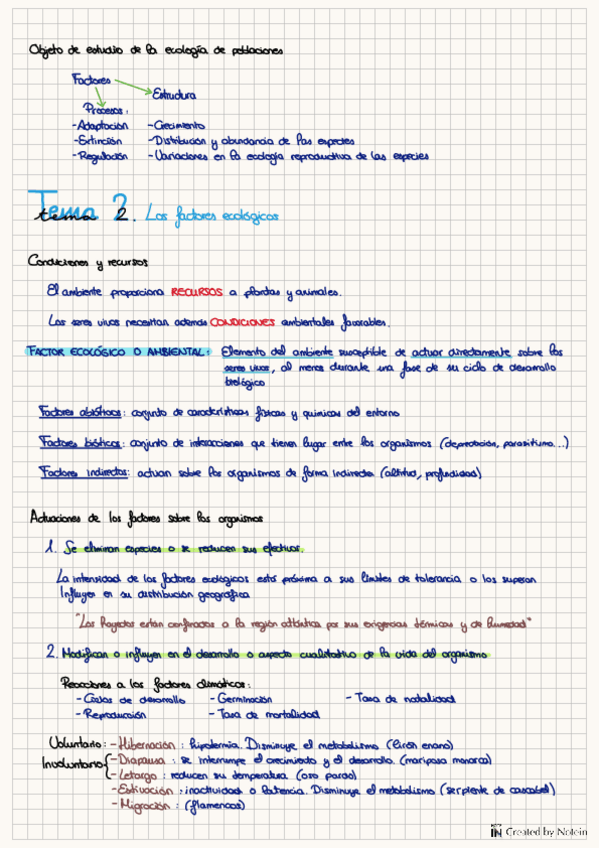 Objeto de estudio de la ecología de poblaciones
Factores
Estructura
Procesos:
-Adaptación -Crecimiento
-Extinción -Distribución y abundancia de las especies
-Regulación -Variaciones en la ecología reproductiva de las especies
Tema 2
tema 2. Los factores ecológicos
Condiciones y recursos
El ambiente proporciona RECURSOS a plantas y animales.
Los seres vivos necesitan además CONDICIONES ambientales favorables.
FACTOR ECOLÓGICO O AMBIENTAL: Elemento del ambiente susceptible de actuar directamente sobre los
seres vivos, al menos durante una fase de su ciclo de desarrollo
biológico
Factores abióticos: conjunto de características físicas y químicas del entorno
Factores bióticos: conjunto de interacciones que tienen lugar entre los organismos (depredación, parasitismo...)
Factores indirectos: actúan sobre los organismos de forma indirecta (altitud, profundidad)
Actuaciones de los factores sobre los organismos
1. Se eliminan especies o se reducen sus efectivos.
La intensidad de los factores ecológicos está próxima a sus límites de tolerancia o los superan
Influyen en su distribución geográfica
"Los Hayedos están confinados a la región atlántica por sus exigencias térmicas y de humedad"
2. Modifican o influyen en el desarrollo o aspecto cualitativo de la vida del organismo
Reacciones a los factores climáticos:
-Ciclos de desarrollo -Germinación -Tasa de natalidad
-Reproducción -Tasa de mortalidad
Voluntario: -Hibernación: hipotermia. Disminuye el metabolismo (lirón enano)
Involuntario -Diapausa: se interrumpe el crecimiento y el desarrollo. (mariposa monarca)
-Letargo: reducen su temperatura (oso pardo)
-Estivación: inactividad o latencia. Disminuye el metabolismo (serpiente de cascabel)
-Migración: (flamencos)
IN Created by Notein